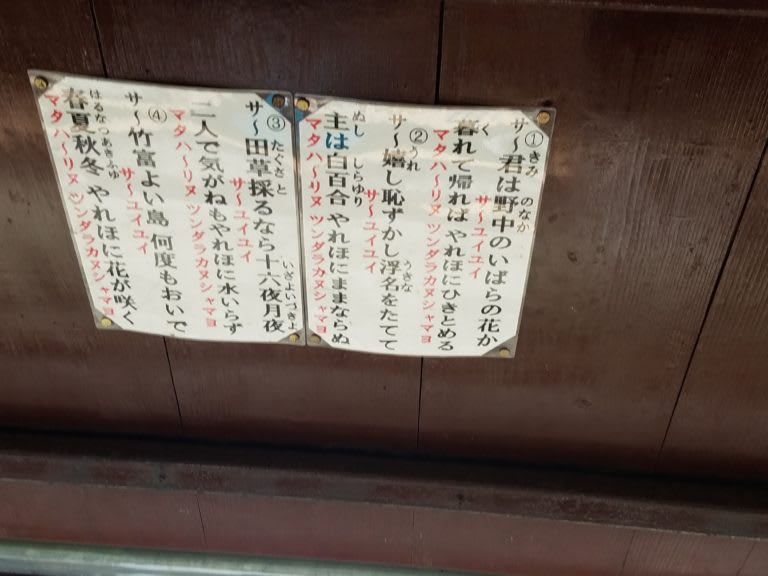 ① サ〜君は野中のいばらの花か
サ〜ユイユイ
暮れて帰れば やれほにひきとめる
マタハ〜リヌ ツンダラカヌシャマヨ
② サ〜嬉し恥ずかし浮名をたてて
サ〜ユイユイ
主は白百合 やれほにままならぬ
マタハ〜リヌ ツンダラカヌシャマヨ
③ サ〜田草採るなら十六夜月夜
サ〜ユイユイ
二人で気がねもやれほに水いらず
マタハ〜リヌ ツンダラカヌシャマヨ
④ サ〜竹富よい島 何度もおいで
サ〜ユイユイ
春夏秋冬 やれほに花が咲く
マタハ〜リヌ ツンダラカヌシャマヨ